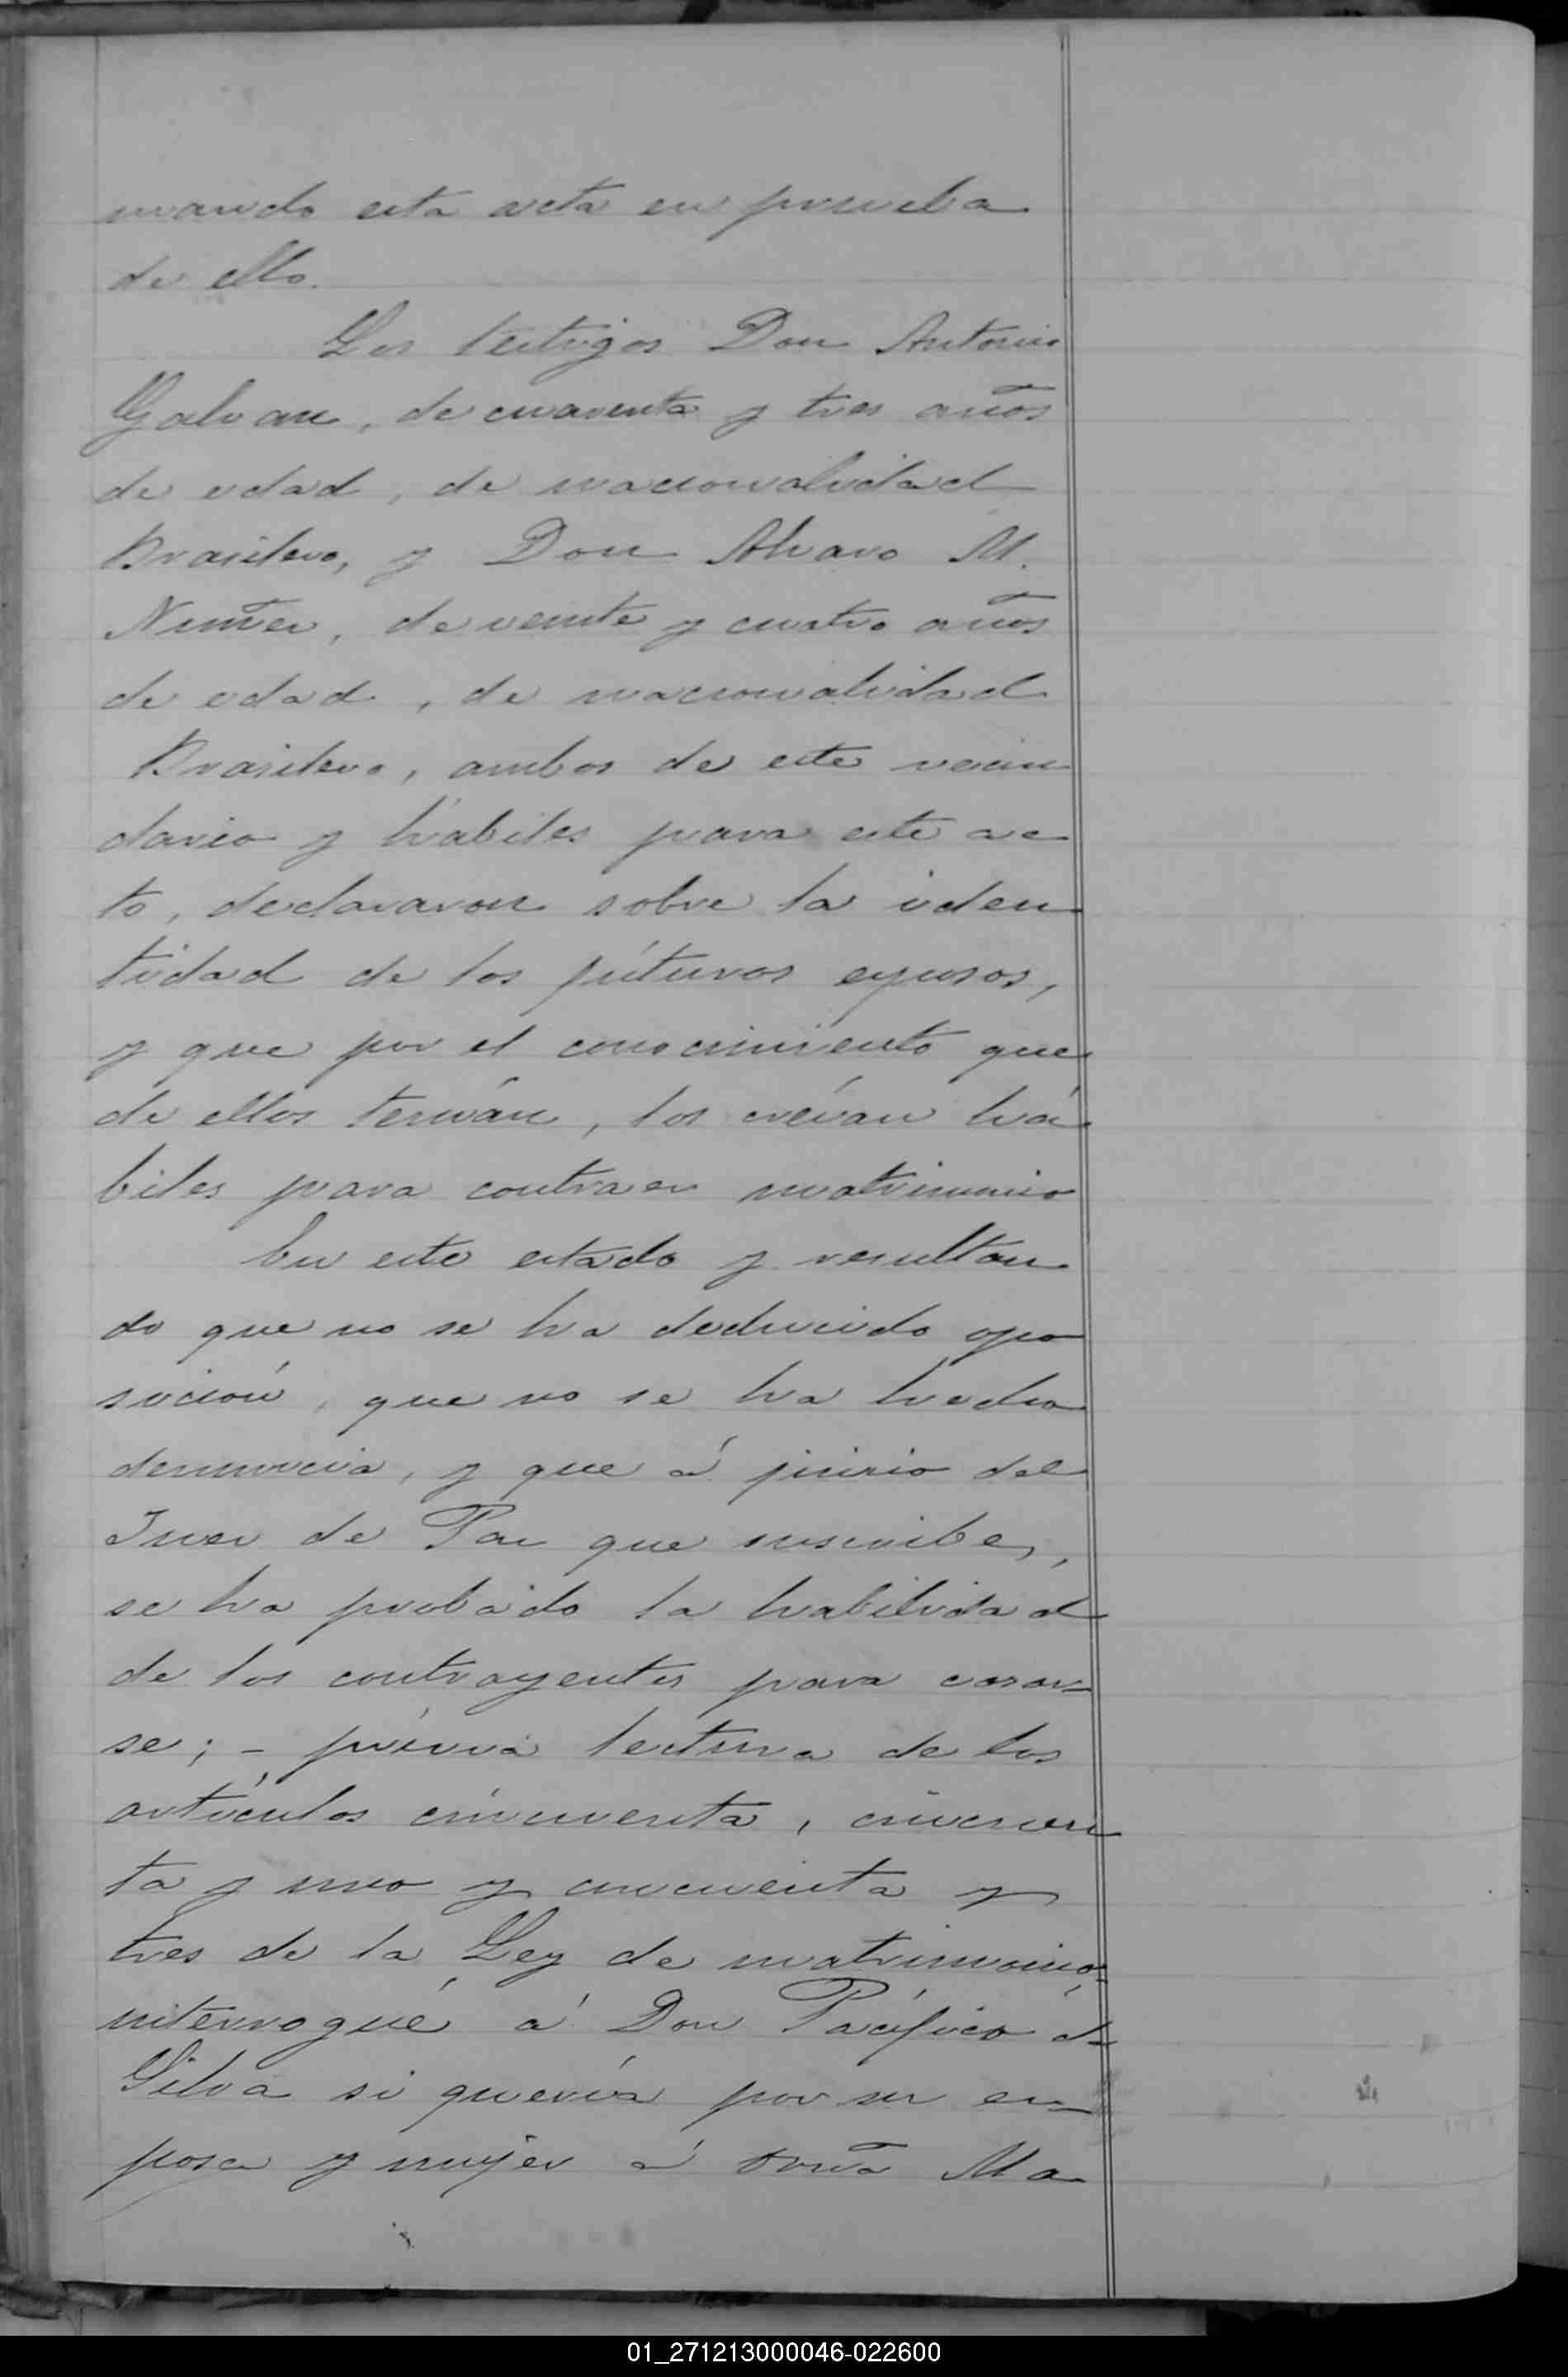 mando esta acta en prueba
de ello.
Los testigos Don Antonio
Galvan, de cuarenta y tres años
de edad, de nacionalidad
Brasilero, y Don Alvaro M.
Nuñez, de veinte y cuatro años
de edad, de nacionalidad
Brasilero, ambos de este vecin
dario y hábiles para este ac
to, declararon sobre la iden
tidad de los fúturos esposos,
y que por el conocimiento que
de ellos tenían, los creían há
biles para contraer matrimonio
En este estado y resultan
do que no se ha deducido opo
sición, que no se ha hecho
denuncia, y que á juicio del
Juez de Paz que suscribe,
se ha probado la habilidad
de los contrayentes para casar=
se; - prévia lectura de los
artículos cincuenta, cincuen
ta y uno y cincuenta y
tres de la Ley de matrimonio,
interrogué á Don Pacífico d
Silva si quería por su es=
posa y mujer á doña Ma
01_271213000046-022600